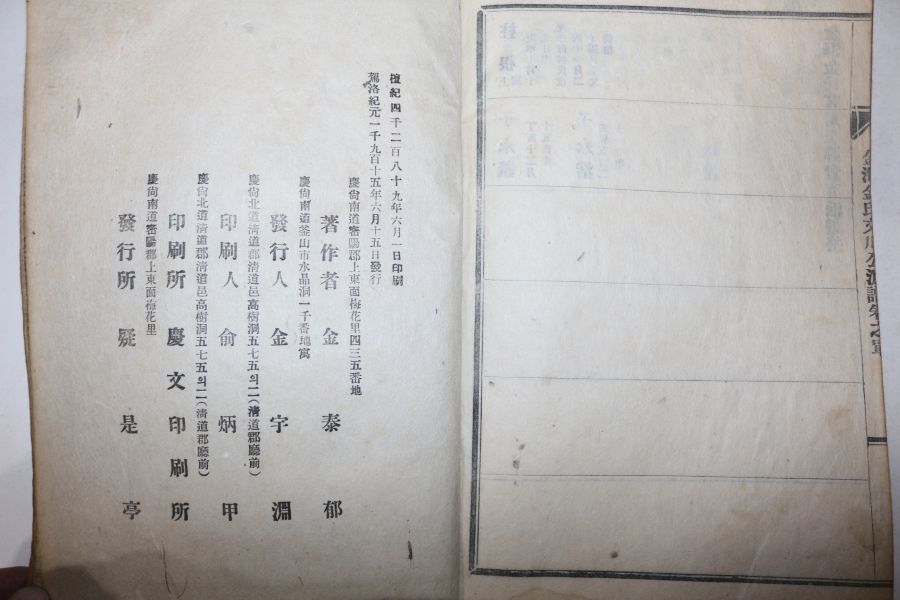 檀紀四千二百八十九年六月一日印刷
駕洛紀元一千九百十五年六月十五日發行
慶尙南道密陽郡上東面梅花里四三五番地
著作者 金 泰 郁
慶尙南道釜山市水晶洞一千番地寓
發行人 金 宇 淵
慶尙北道淸道郡淸道邑高樹洞五七五의二(淸道郡廳前)
印刷人 俞 炳 甲
慶尙北道淸道郡淸道邑高樹洞五七五의二(淸道郡廳前)
印刷所 慶文印刷所
慶尙南道密陽郡上東面梅花里
發行所 疑是亭